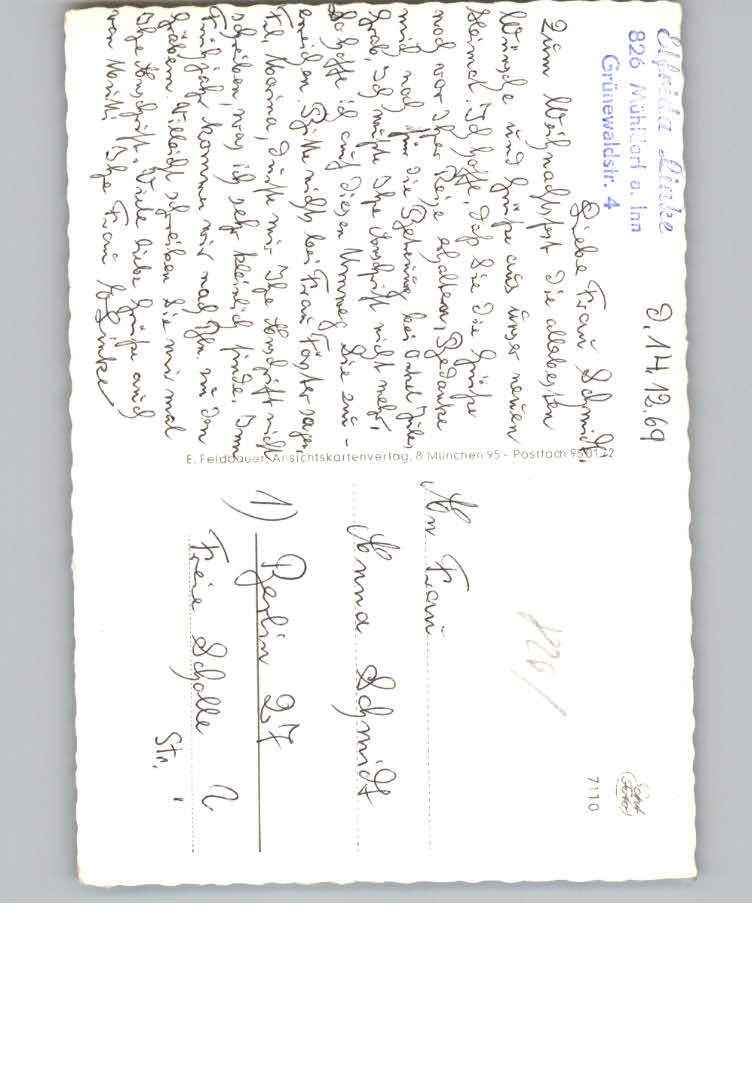 Elfrida Linke
826 Mühldorf a. Inn
Grünewaldstr. 4
D. 14.12.69
Liebe Frau Schmidt,
Zum Weihnachtsfest die allerbesten
Wünsche und Grüße aus unser neuen
Heimat. Ich hoffe, daß Sie die Grüße
noch vor Ihrer Reise erhalten, Bedanke
mich noch für die Betreuung bei Onkels
Grab. Ich wußte Ihre Anschrift nicht mehr,
So hoffe ich auf diesen Umweg Sie zu er-
reichen. Bitte nichts bei Frau Förster sagen,
Frl. Maria, durfte mir Ihre Anschrift nicht
schreiben, was ich sehr kleinlich finde. Im
Frühjahr kommen wir nach Bln zu den
Gräbern. Vielleicht schreiben Sie mir mal
Ihre Anschrift. Viele liebe Grüße auch
von Ihre Frau Linke
E. Feldbauer, Ansichtskartenverlag, 8 München 95 - Postfach 950172
An Frau
Anna Schmidt
1) Berlin 27
Freie Scholle
Str.
826/
7110